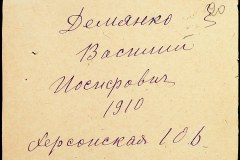 20
Демянко
Василий
Иосифович
1910
Херсонская 10 в.